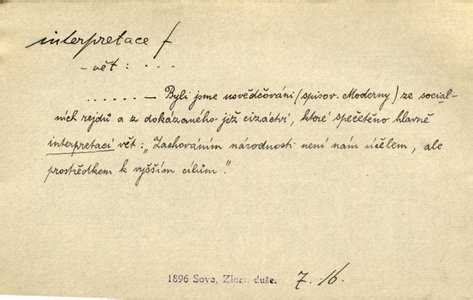 interpretace f
- vět: . . . .
. . . . . . — Byli jsme usvědčováni (spisov. Moderny) ze sociál-
ních rejdů a z dokázaného již cizáctví, které spečetěno hlavně
interpretací vět: „Zachováním národnosti není nám účelem, ale
prostředkem k vyšším cílům."
1896 Sova, Zlom. duše. 7. /6.